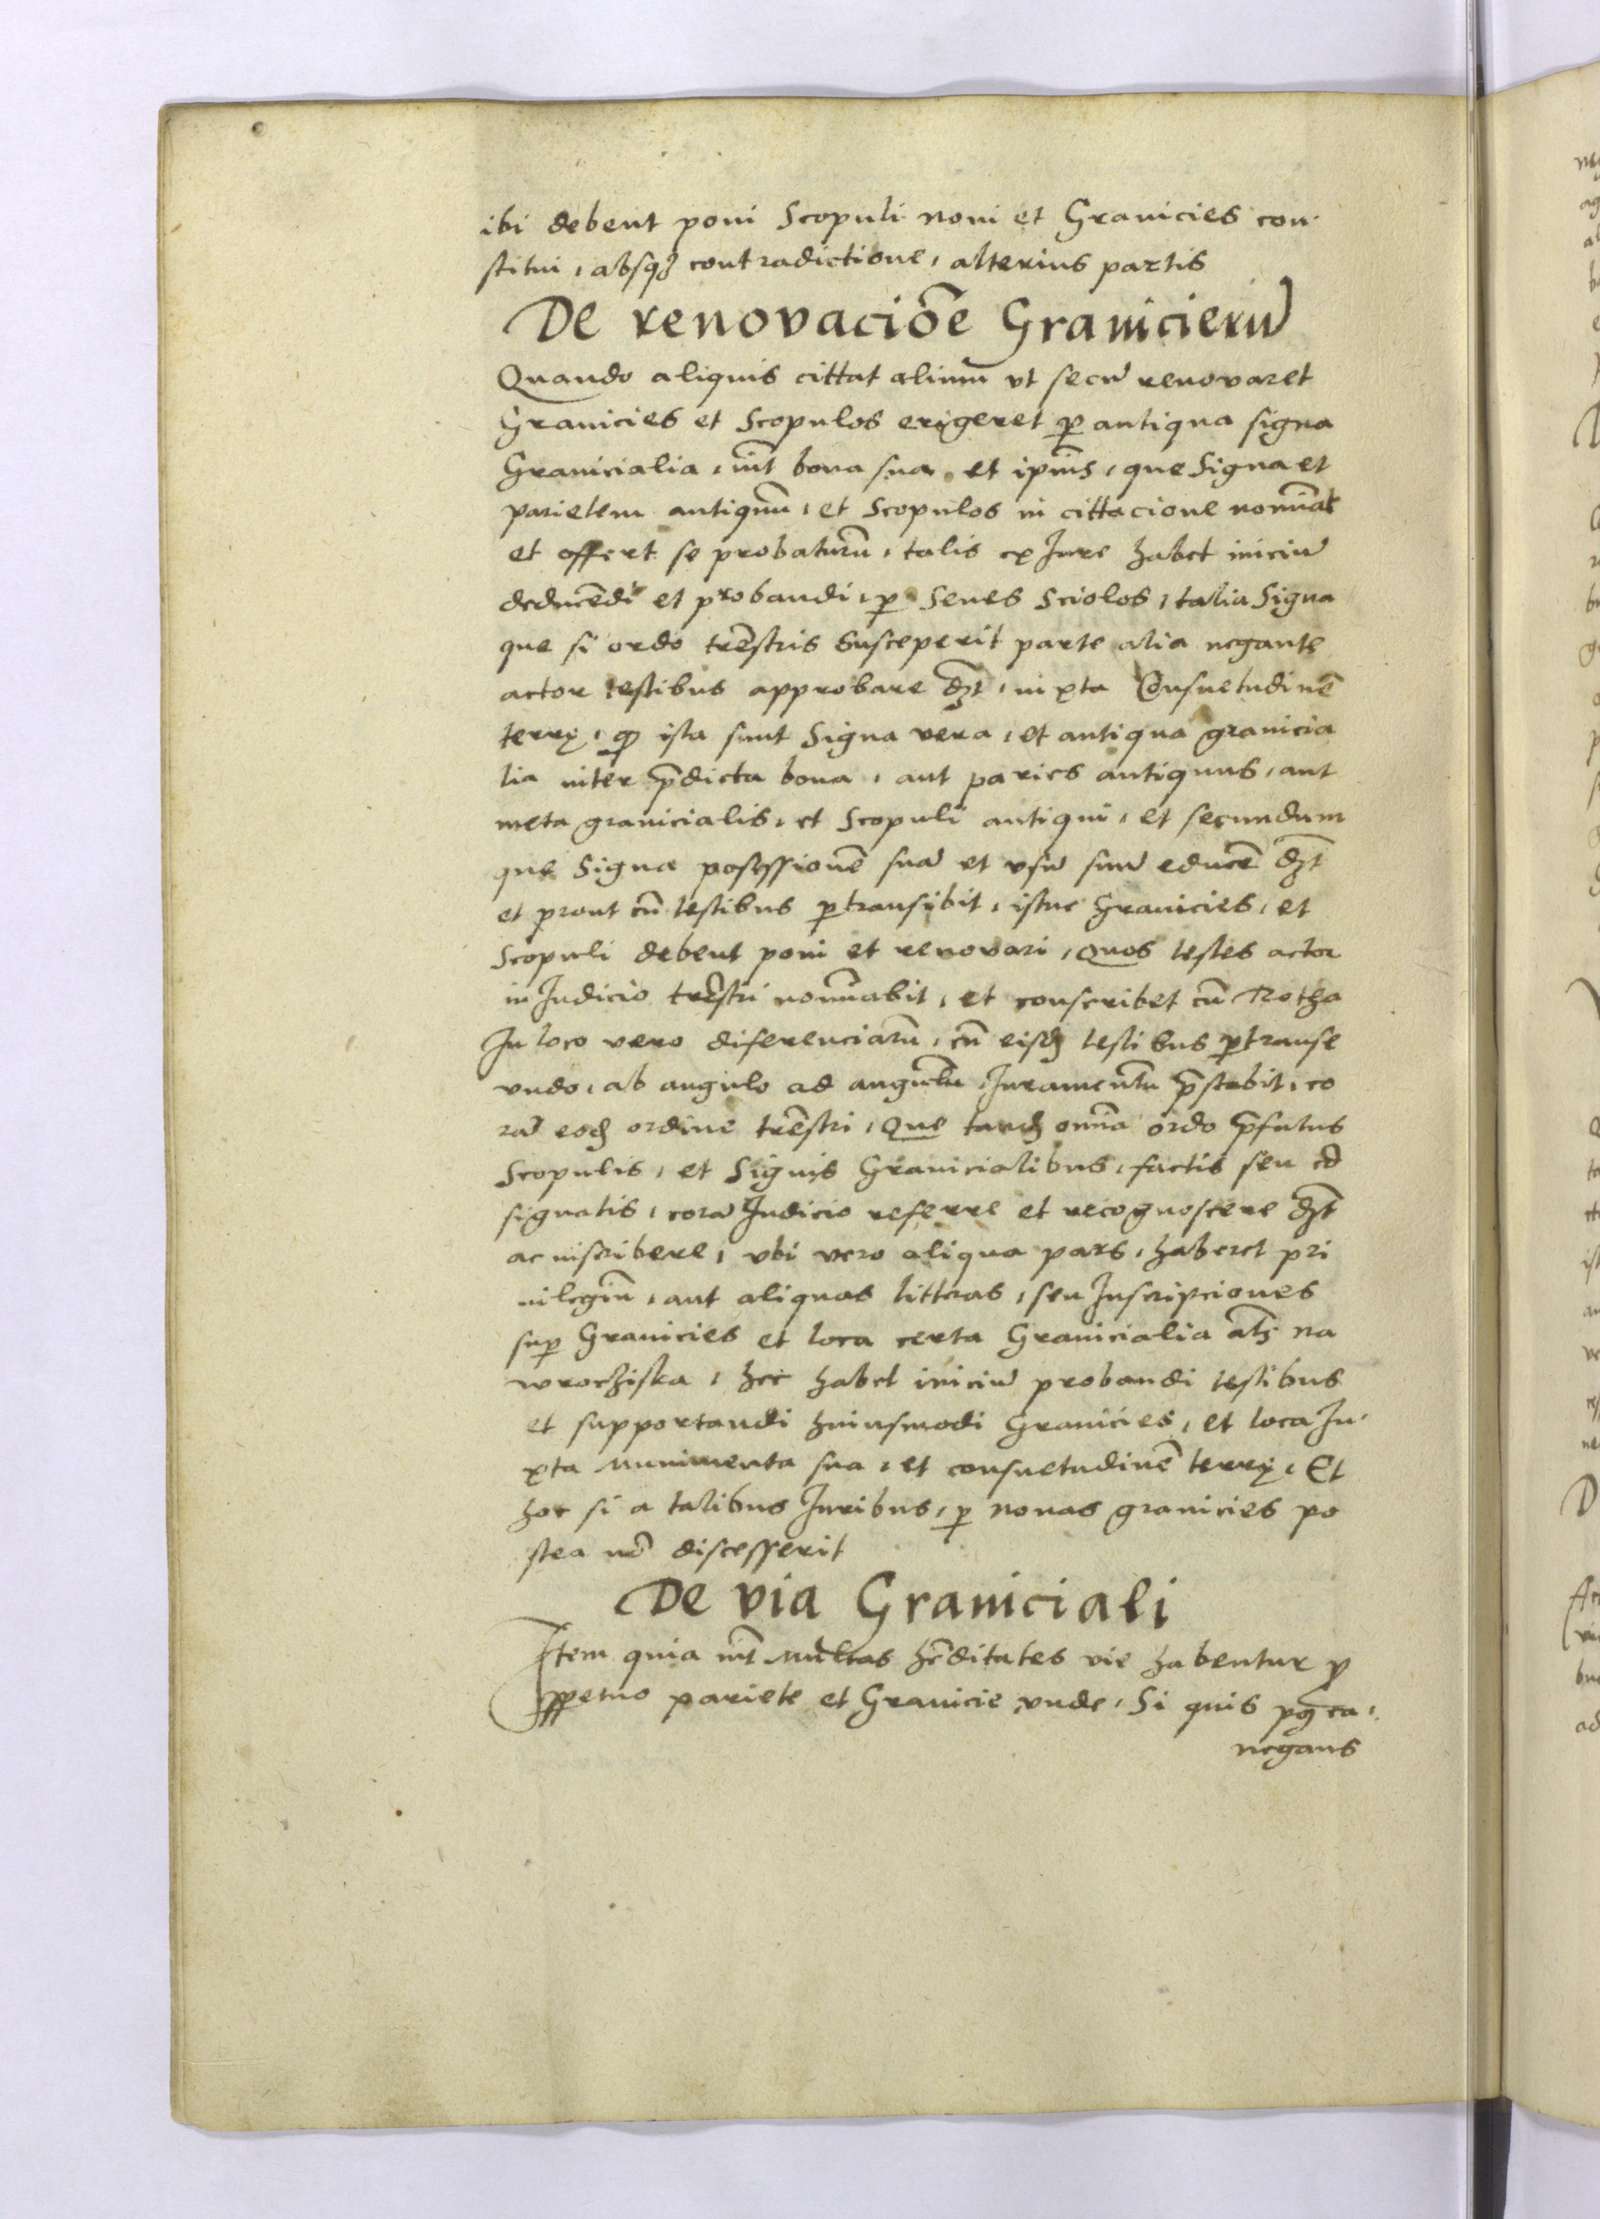 ibi debent poni Scopuli noui et Granicies con
stitui, absqȝ contradictione, alterius partis
De renovaciõe Granicierũ
Quando aliquis cittat alium vt secũ renovaret
Granicies et Scopulos erigeret ꝑ antiqua signa
Granicialia, int̃ bona sua et ipius̃, que Signa et
parietem antiquũ, et Scopulos in cittacione nomiãt
et offert se probaturũ, talis ex Jure habet iniciũ
deducẽdi et probandi, ꝑ Senes Sciolos, talia Signa
que si ordo trẽstris Susceperit parte alia negante
actor testibus approbare dȝt, iuxta Consuetudinẽ
terrę, ꝙ ista sunt Signa vera, et antiqua granicia
lia inter p̃dicta bona, aut paries antiquus, aut
meta granicialis, et Scopuli antiqui, et secundum
que Signa posessionẽ suã et vsũ suũ educẽ dȝt
et prout cũ testibus ꝑtransibit, istuc Granicies, et
Scopuli debent poni et renovari, Quos testes actor
in Judicio trẽstri nomĩabit, et conscribet cũ Rotha
In loco vero diferenciarũ, cũ eisdȝ testibus ꝑtranse
undo, ab angulo ad angulũ Juramentũ p̃stabit, co
rã eodȝ ordine trẽstri, Que tandȝ omĩa ordo p̃fatus
Scopulis, et Signis Granicialibus, factis seu cõ
signatis, corã Judicio referre et recognoscere dȝt
ac inscribere, vbi vero aliqua pars, haberet pri
uilegiũ, aut aliquas litteras, seu Inscripciones
suꝑ Granicies et loca certa Granicialia al̃s na
wrochiska, hec habet iniciũ probandi testibus
et supportandi huiusmodi Granicies, et loca Ju
xta Munimenta sua, et consuetudinẽ terrę, Et
hoc si a talibus Juribus, ꝑ nouas granicies po
stea nõ discesserit
De via Graniciali
Item quia int̃ Multas hẽditates vie habentur ꝓ
ꝑpetuo pariete et Granicie vnde, Si quis
negans